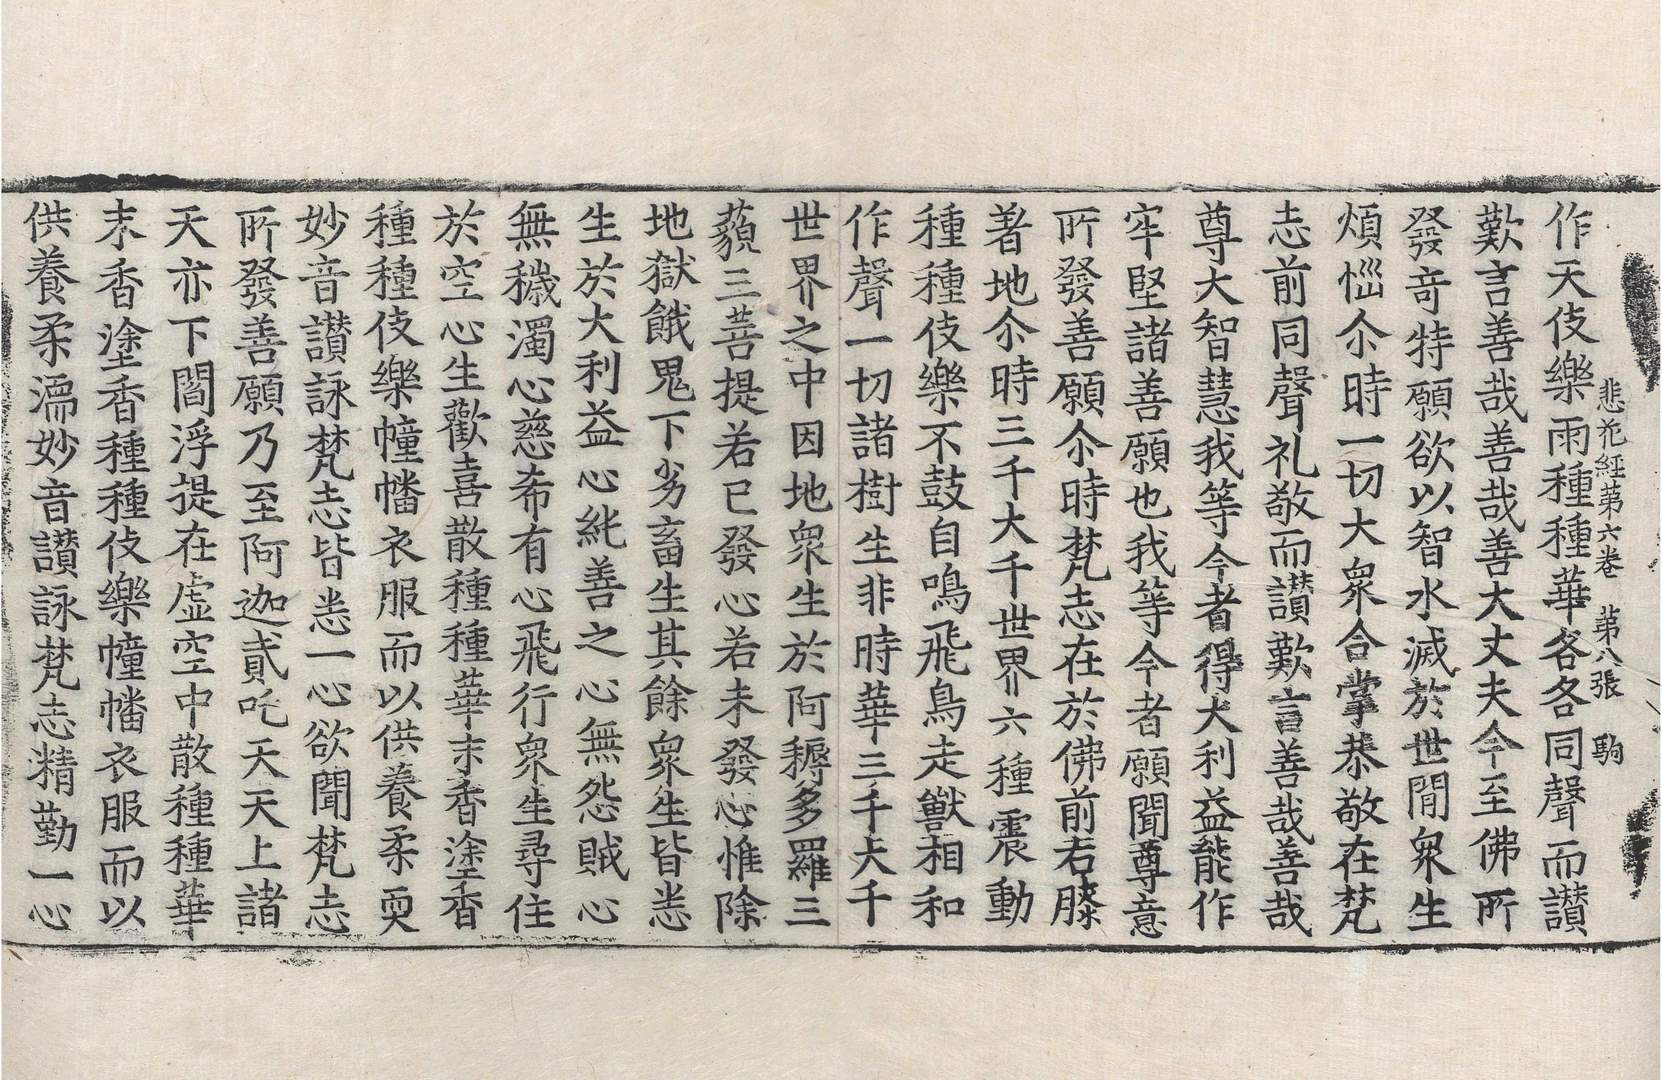 悲花經第六卷　第八張　駒
作天伎樂雨種種華各各同聲而讃
歎言善哉善哉善大丈夫今至佛所
發竒特願欲以智水滅於世閒衆生
煩惱尒時一切大衆合掌恭敬在梵
志前同聲礼敬而讃歎言善哉善哉
尊大智慧我等今者得大利益能作
牢堅諸善願也我等今者願聞尊意
所發善願尒時梵志在於佛前右膝
著地尒時三千大千世界六種震動
種種伎樂不鼓自鳴飛鳥走獸相和
作聲一切諸樹生非時華三千大千
世界之中因地衆生於阿耨多羅三
藐三菩提若已發心若未發心惟除
地獄餓鬼下劣畜生其餘衆生皆悉
生於大利益心純善之心無怨賊心
無穢濁心慈心希有心飛行衆生尋住
於空心生歡喜散種種華末香塗香
種種伎樂幢幡衣服而以供養柔耎
妙音讃詠梵志皆悉一心欲聞梵志
所發善願乃至阿迦貳吒天天上諸
天亦下閻浮提在虛空中散種種華
末香塗香種種伎樂幢幡衣服而以
供養柔濡妙音讃詠梵志精勤一心